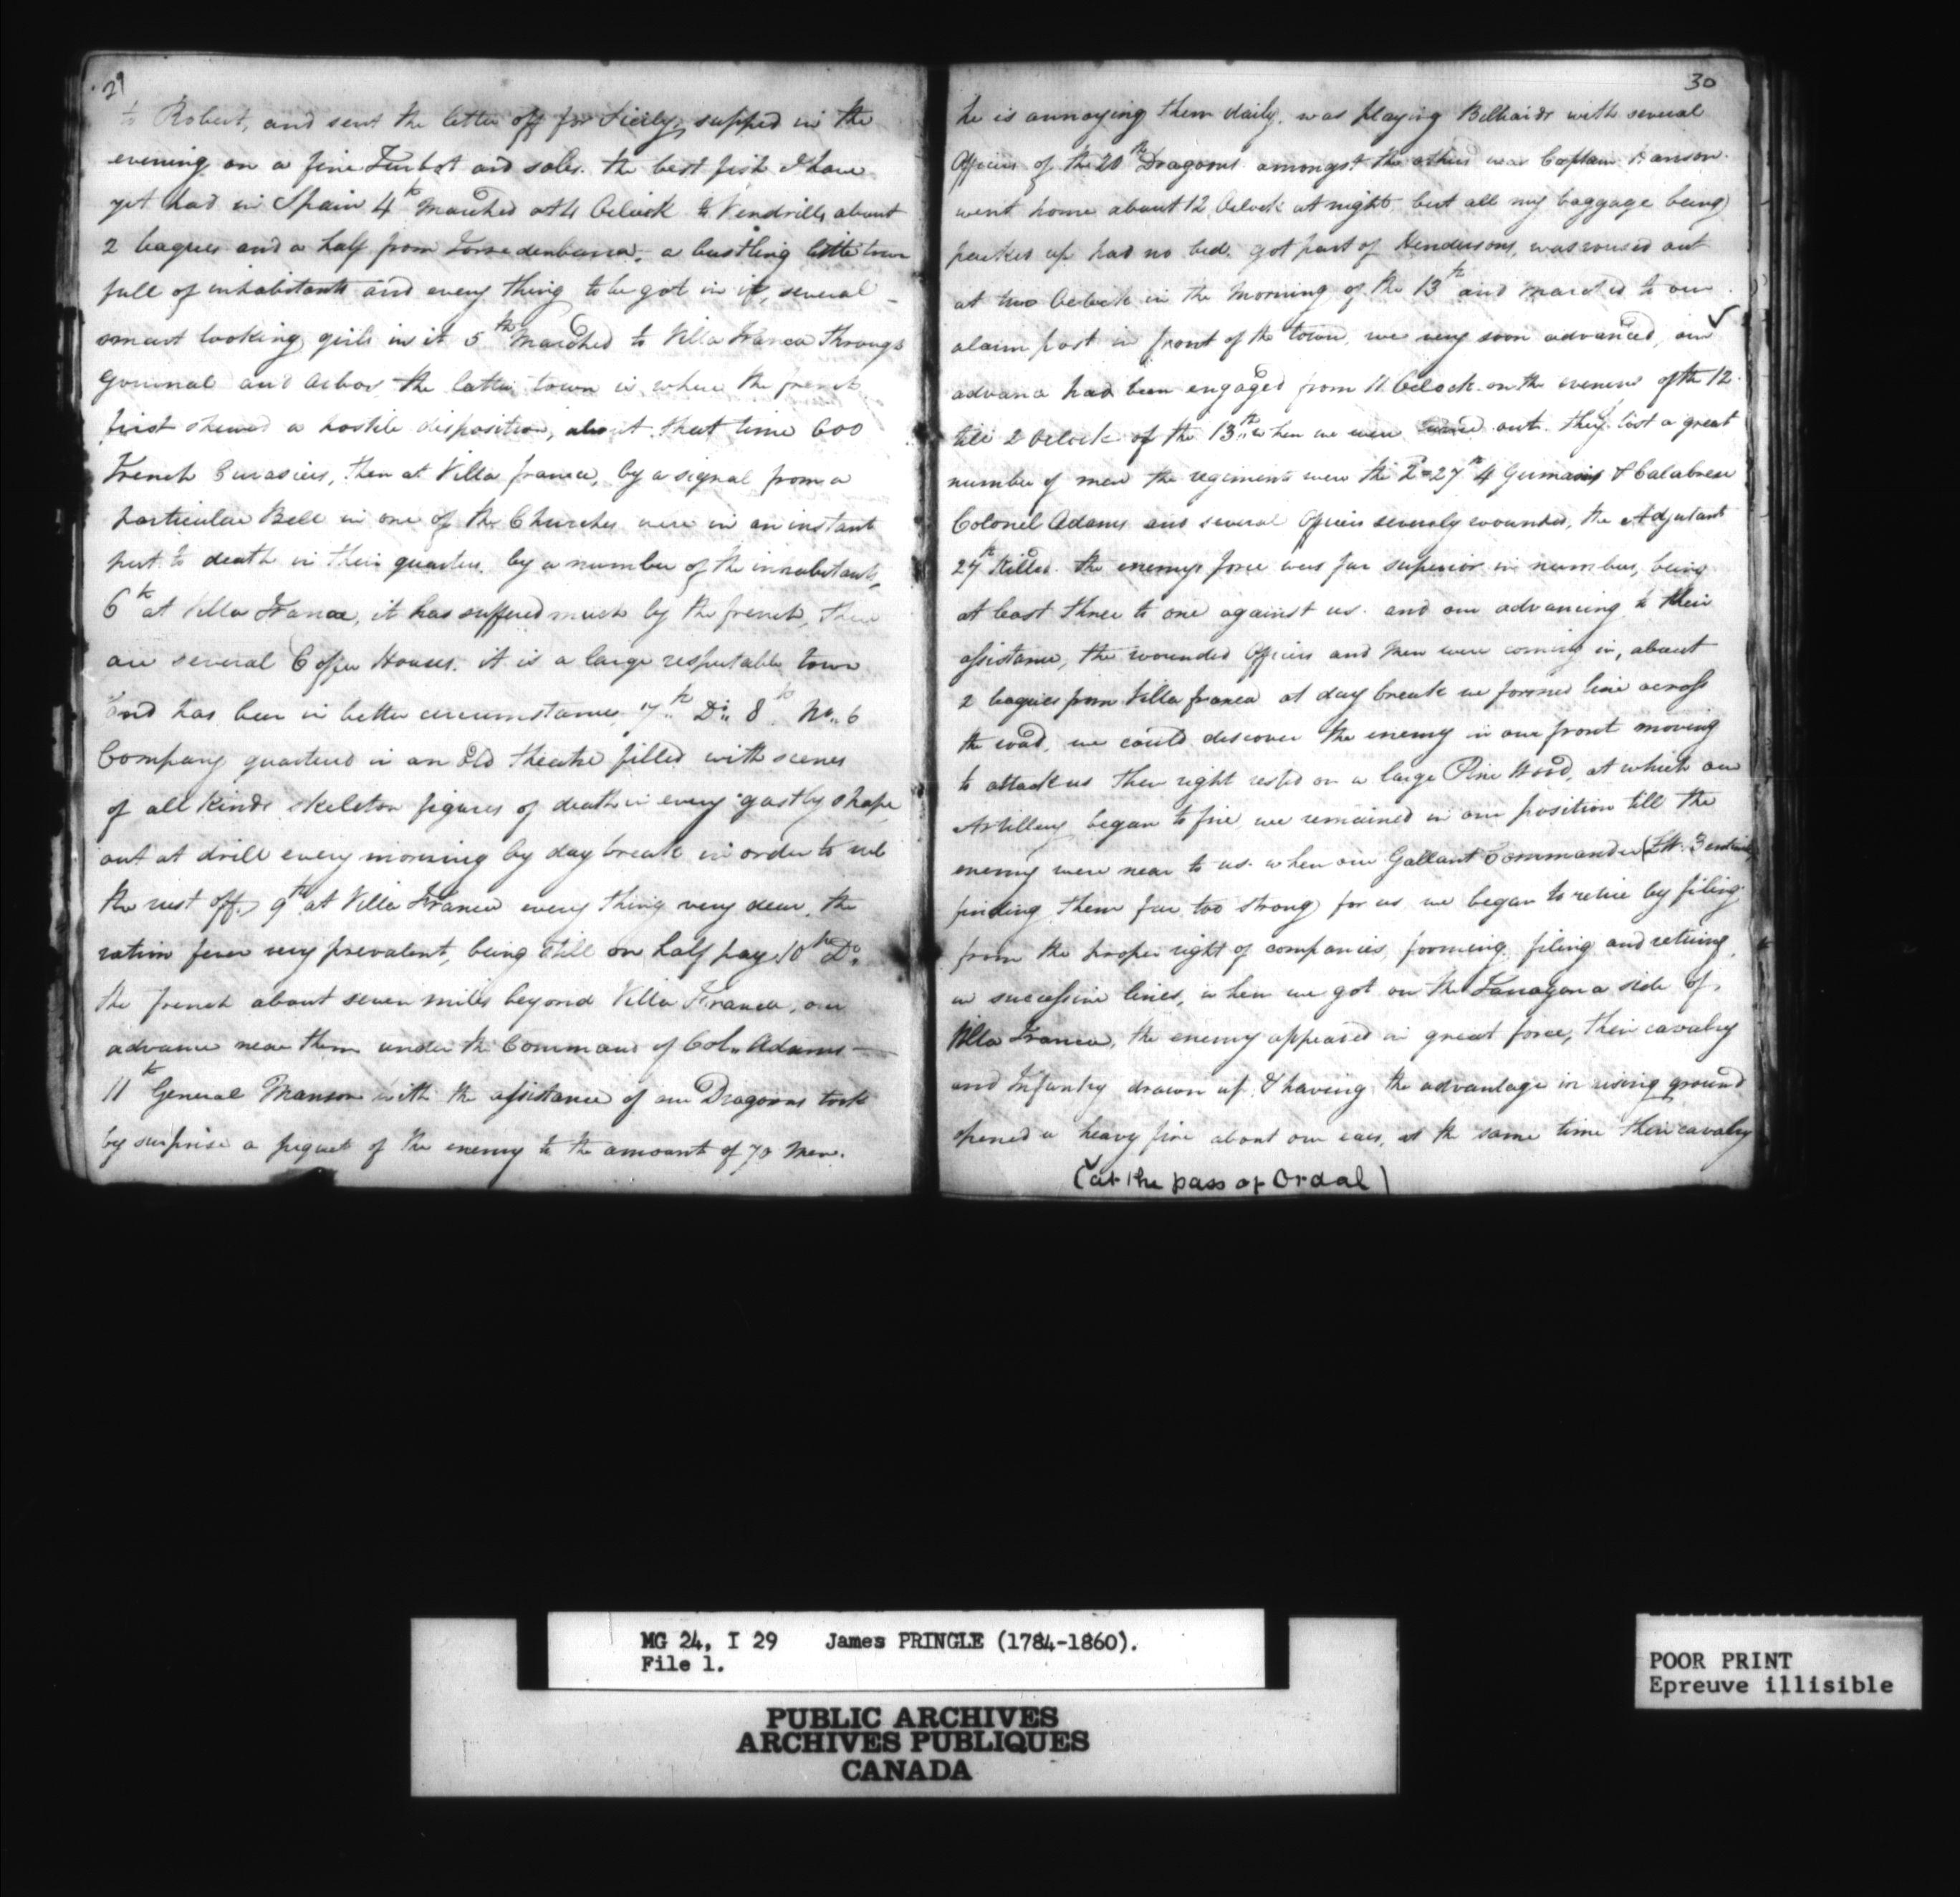 29
to Robert, and sent the letter off for Sicily, supped in the
evening on a fine Turbot and soles. the best fish I have
yet had in Spain 4th marched at 4 Oclock to Vendrills about
2 leagues and a half from Torredenbarra, a bustling little town
full of inhabitants and every thing to be got in it, several
smart looking girls in it 5th Marched to Villa Franca through
Gournal and Arbos the latter town is where the french
first shewed a hostile disposition, about that time 600
French Curasiers, then at Villa franca, by a signal from a
particular Bell in one of the Churches were in an instant
put to death in their quarters by a number of the inhabitants,
6th at Villa Franca, it has suffered much by the french, there
are several Coffee Houses. it is a large respectable town
and has been in better circumstances 7th Do 8th No. 6
Company quartered in an Old theatre filled with scenes
of all kinds skeleton figures of death in every gastly shape
out at drill every morning by day break in order to rub
the rust off, 9th at Villa Franca every thing very dear, the
ration fever very prevalent, being still on half pay 10th Do
the french about seven miles beyond Villa Franca, our
advance near them under the Command of Col. Adams
11th General Manson with the assistance of our Dragoons took
by surprise a piquet of the enemy to the amount of 70 Men.
30
he is annoying them daily. was playing Billiards with several
Officers of the 20th Dragoons amongst the others was Captain Hanson.
went home about 12 Oclock at night but all my baggage being
packed up had no bed, got part of Hendersons, was roused out
at two Oclock in the Morning of the 13th and marched to our
alarm post in front of the town, we very soon advanced, our
advance had been engaged from 11 Oclock on the evening of the 12
till 2 Oclock of the 13th when we were out. they lost a great
number of men the regiments were the 2d 27th 4 Germans & Calabrese
Colonel Adams and several Officers severely wounded, the Adjutant
27th Killed. the enemys force was far superior in number, being
at least three to one against us. and our advancing to their
assistance, the wounded Officers and Men were coming in, about
2 leagues from Villa franca at day break we formed line across
the road, we could discover the enemy in our front moving
to attack us their right rested on a large Pine Wood, at which our
Artillery began to fire, we remained in our position till the
enemy were near to us. when our Gallant Commander
finding them far too strong for us we began to retire by filing
from the proper right of companies, forming, filing and retiring,
in successive lines, when we got on the Tarragona side of,
Villa Franca, the enemy appeared in great force, their cavalry
and Infantry drawn up & having the advantage in rising ground
opened a heavy fire about our ears, at the same time their cavalry
(at the pass of Ordal)
MG 24, I 29 James PRINGLE (1784-1860).
File 1.
PUBLIC ARCHIVES
ARCHIVES PUBLIQUES
CANADA
POOR PRINT
Epreuve illisible